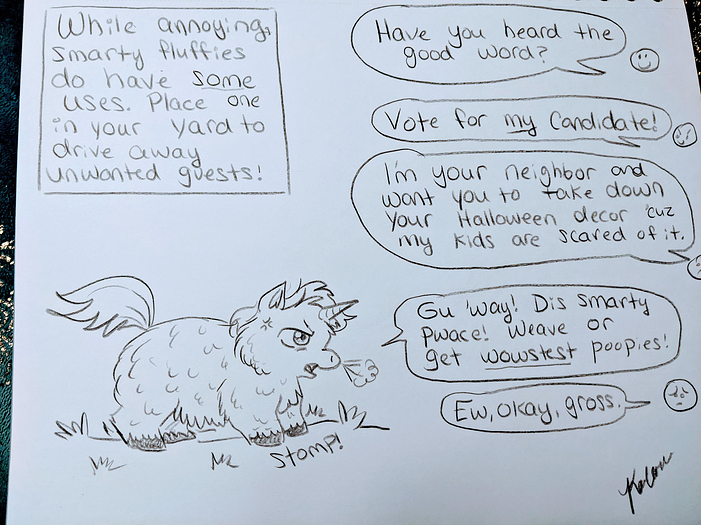 While annoying,
smarty fluffies
do have some
uses. Place one
in your yard to
drive away
unwanted guests!
Have you heard the
good word?
Vote for my Candidate!
I'm your neighbor and
want you to take down
your Halloween decor 'cuz
my kids are scared of it.
Gu 'way! Dis smarty
pwace! Weave or
get wowstest poopies!
Ew, okay, gross.
STOMP!